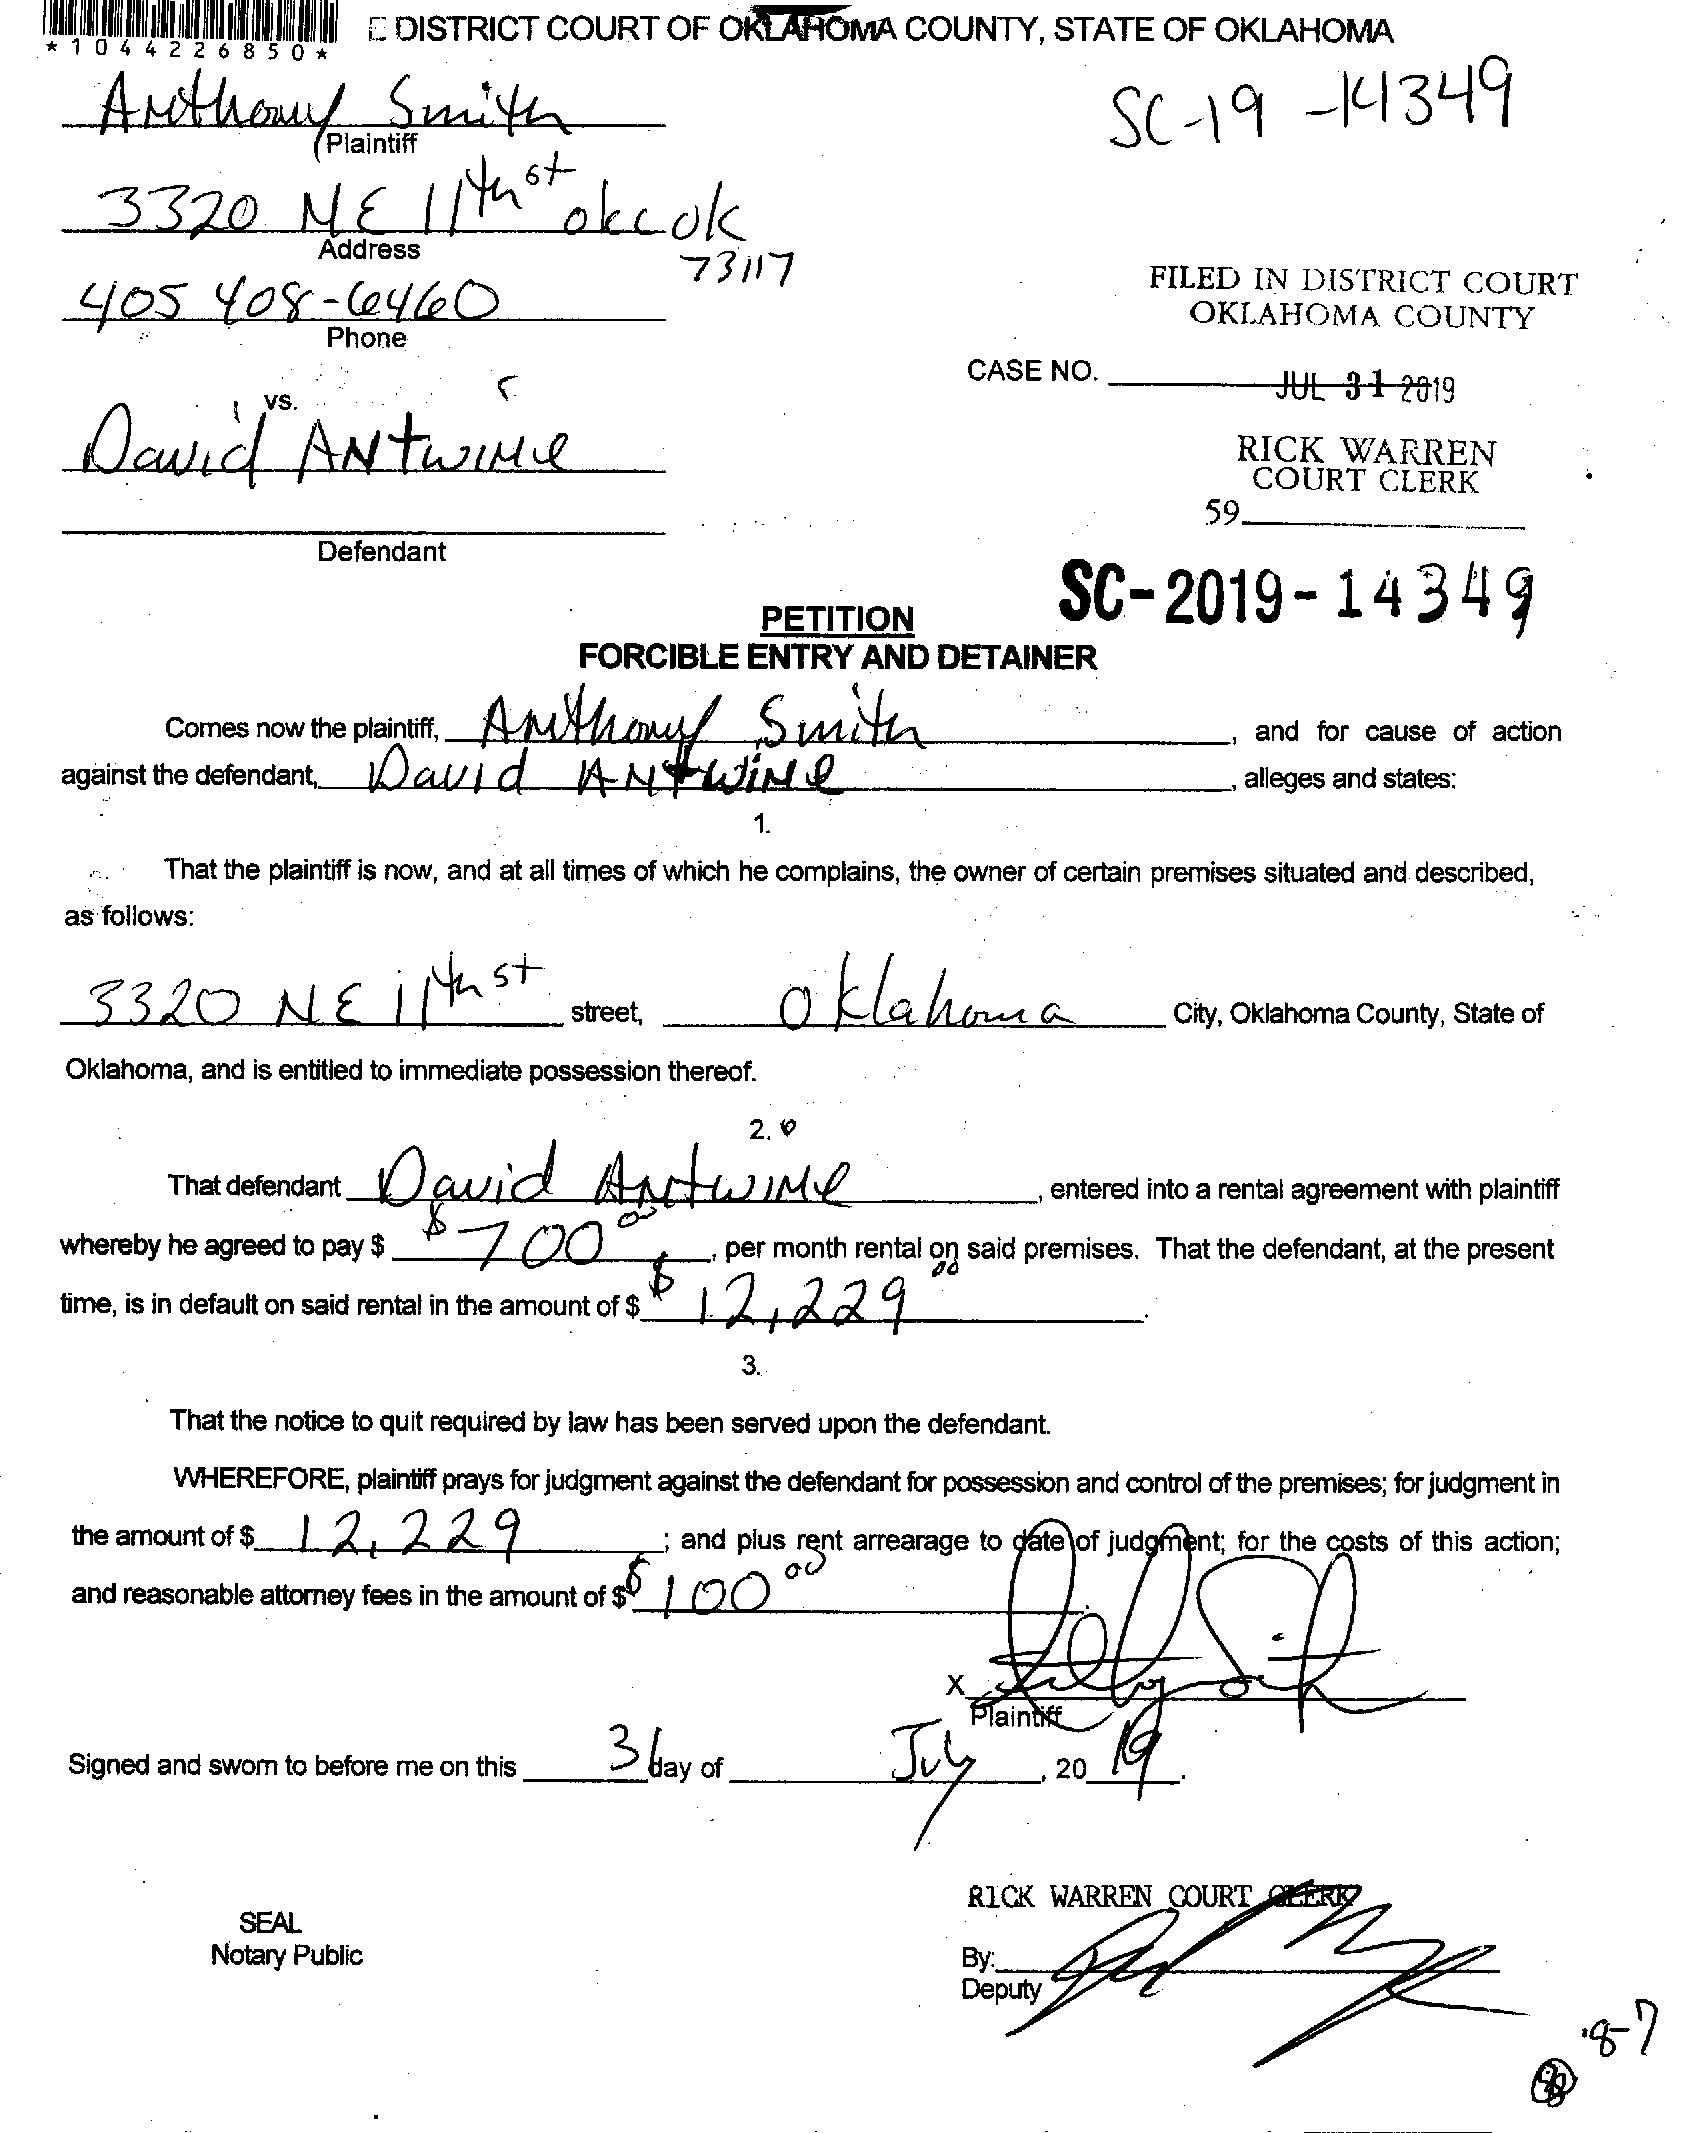 *1044226850*
E DISTRICT COURT OF OKLAHOMA COUNTY, STATE OF OKLAHOMA
Anthony Smith
Plaintiff
SC-19-14349
3320 NE 11th st okc ok
Address
73117
405 408-6460
Phone
FILED IN DISTRICT COURT
OKLAHOMA COUNTY
CASE NO.
JUL 31 2019
vs.
David Antwine
RICK WARREN
COURT CLERK
59
Defendant
SC-2019-14349
PETITION
FORCIBLE ENTRY AND DETAINER
Comes now the plaintiff, Anthony Smith, and for cause of action
against the defendant, David Antwine, alleges and states:
1.
That the plaintiff is now, and at all times of which he complains, the owner of certain premises situated and described,
as follows:
3320 NE 11th st street, Oklahoma City, Oklahoma County, State of
Oklahoma, and is entitled to immediate possession thereof.
2.
That defendant David Antwine, entered into a rental agreement with plaintiff
whereby he agreed to pay $ $700 00, per month rental on said premises. That the defendant, at the present
time, is in default on said rental in the amount of $ $12,229 00.
3.
That the notice to quit required by law has been served upon the defendant.
WHEREFORE, plaintiff prays for judgment against the defendant for possession and control of the premises; for judgment in
the amount of $ 12,229; and plus rent arrearage to date of judgment; for the costs of this action;
and reasonable attorney fees in the amount of $ $100 00.
X
Plaintiff
Signed and sworn to before me on this 31 day of July, 2019.
RICK WARREN COURT CLERK
SEAL
Notary Public
By:
Deputy
8-7